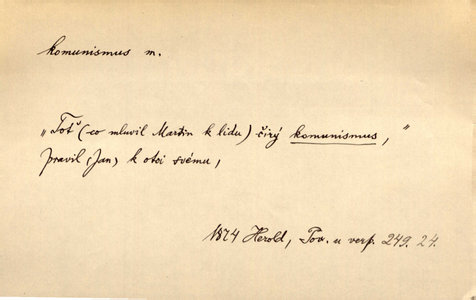 komunismus m.
„Toť (co mluvil Martin k lidu) čirý komunismus,“
pravil (Jan) k otci svému,
1874 Herold, Tov. u verp. 249. 24.